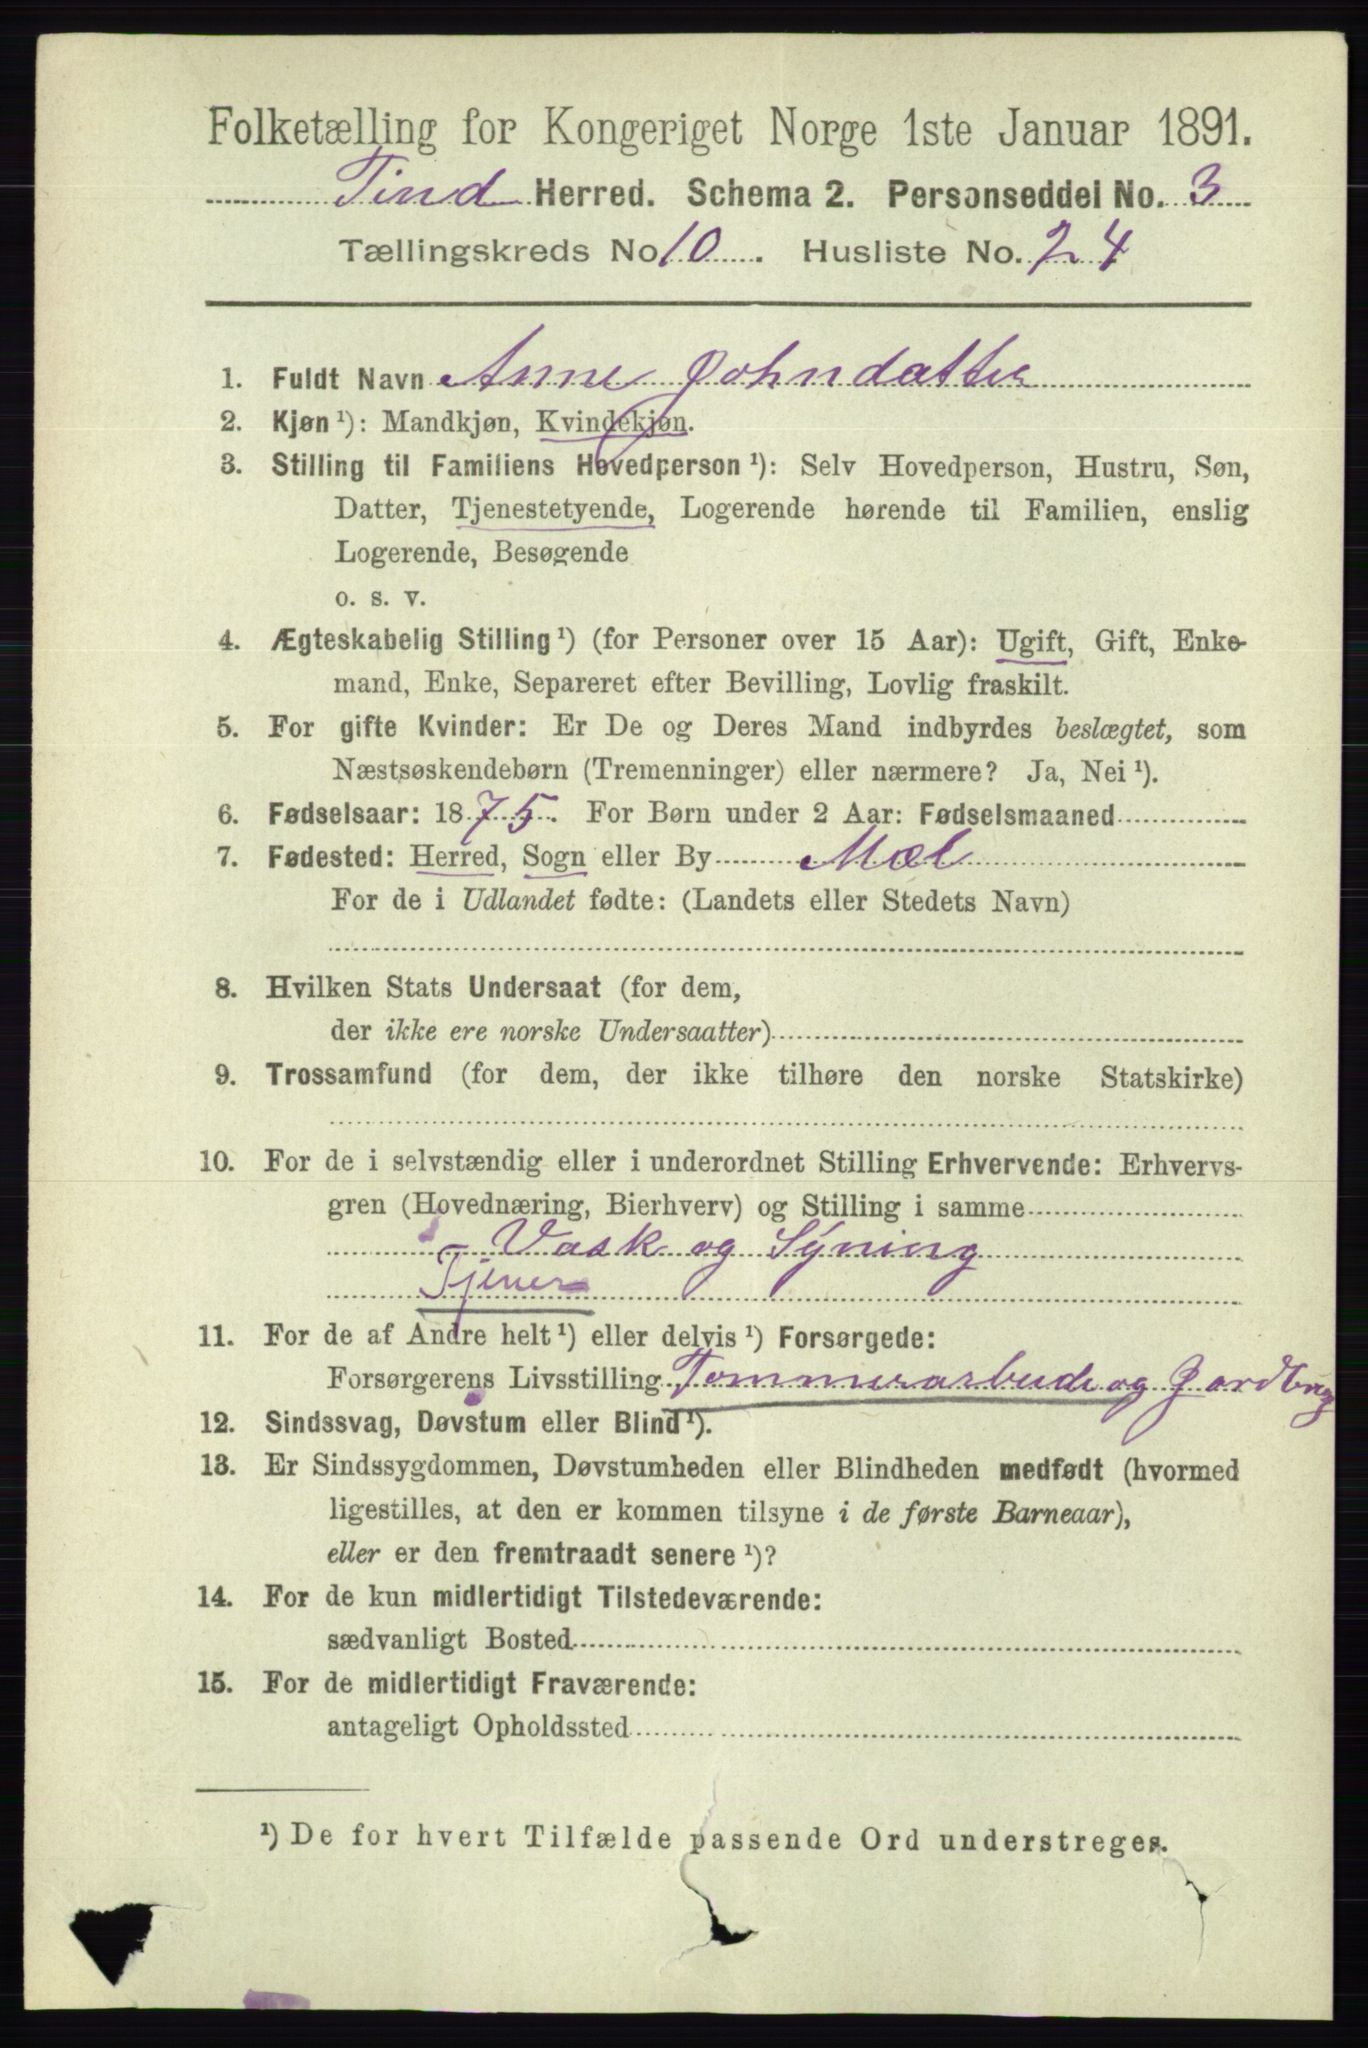 Folketælling for Kongeriget Norge 1ste Januar 1891.
Tind Herred. Schema 2. Personseddel No. 3
Tællingskreds No 10. Husliste No. 24
1. Fuldt Navn Anne Johndatter
2. Kjøn ¹): Mandkjøn, Kvindekjøn.
3. Stilling til Familiens Hovedperson ¹): Selv Hovedperson, Hustru, Søn,
Datter, Tjenestetyende, Logerende hørende til Familien, enslig
Logerende, Besøgende
o. s. v.
4. Ægteskabelig Stilling ¹) (for Personer over 15 Aar): Ugift, Gift, Enke-
mand, Enke, Separeret efter Bevilling, Lovlig fraskilt.
5. For gifte Kvinder: Er De og Deres Mand indbyrdes beslægtet, som
Næstsøskendebørn (Tremenninger) eller nærmere? Ja, Nei ¹).
6. Fødselsaar: 1875. For Børn under 2 Aar: Fødselsmaaned
7. Fødested: Herred, Sogn eller By Mæl
For de i Udlandet fødte: (Landets eller Stedets Navn)
8. Hvilken Stats Undersaat (for dem,
der ikke ere norske Undersaatter)
9. Trossamfund (for dem, der ikke tilhøre den norske Statskirke)
10. For de i selvstændig eller i underordnet Stilling Erhvervende: Erhvervs-
gren (Hovednæring, Bierhverv) og Stilling i samme
Vask og Syning
Tjener
11. For de af Andre helt ¹) eller delvis ¹) Forsørgede:
Forsørgerens Livsstilling Tømmerarbeide og Jordbrug
12. Sindssvag, Døvstum eller Blind ¹).
13. Er Sindssygdommen, Døvstumheden eller Blindheden medfødt (hvormed
ligestilles, at den er kommen tilsyne i de første Barneaar),
eller er den fremtraadt senere ¹)?
14. For de kun midlertidigt Tilstedeværende:
sædvanligt Bosted
15. For de midlertidigt Fraværende:
antageligt Opholdssted
¹) De for hvert Tilfælde passende Ord understreges.